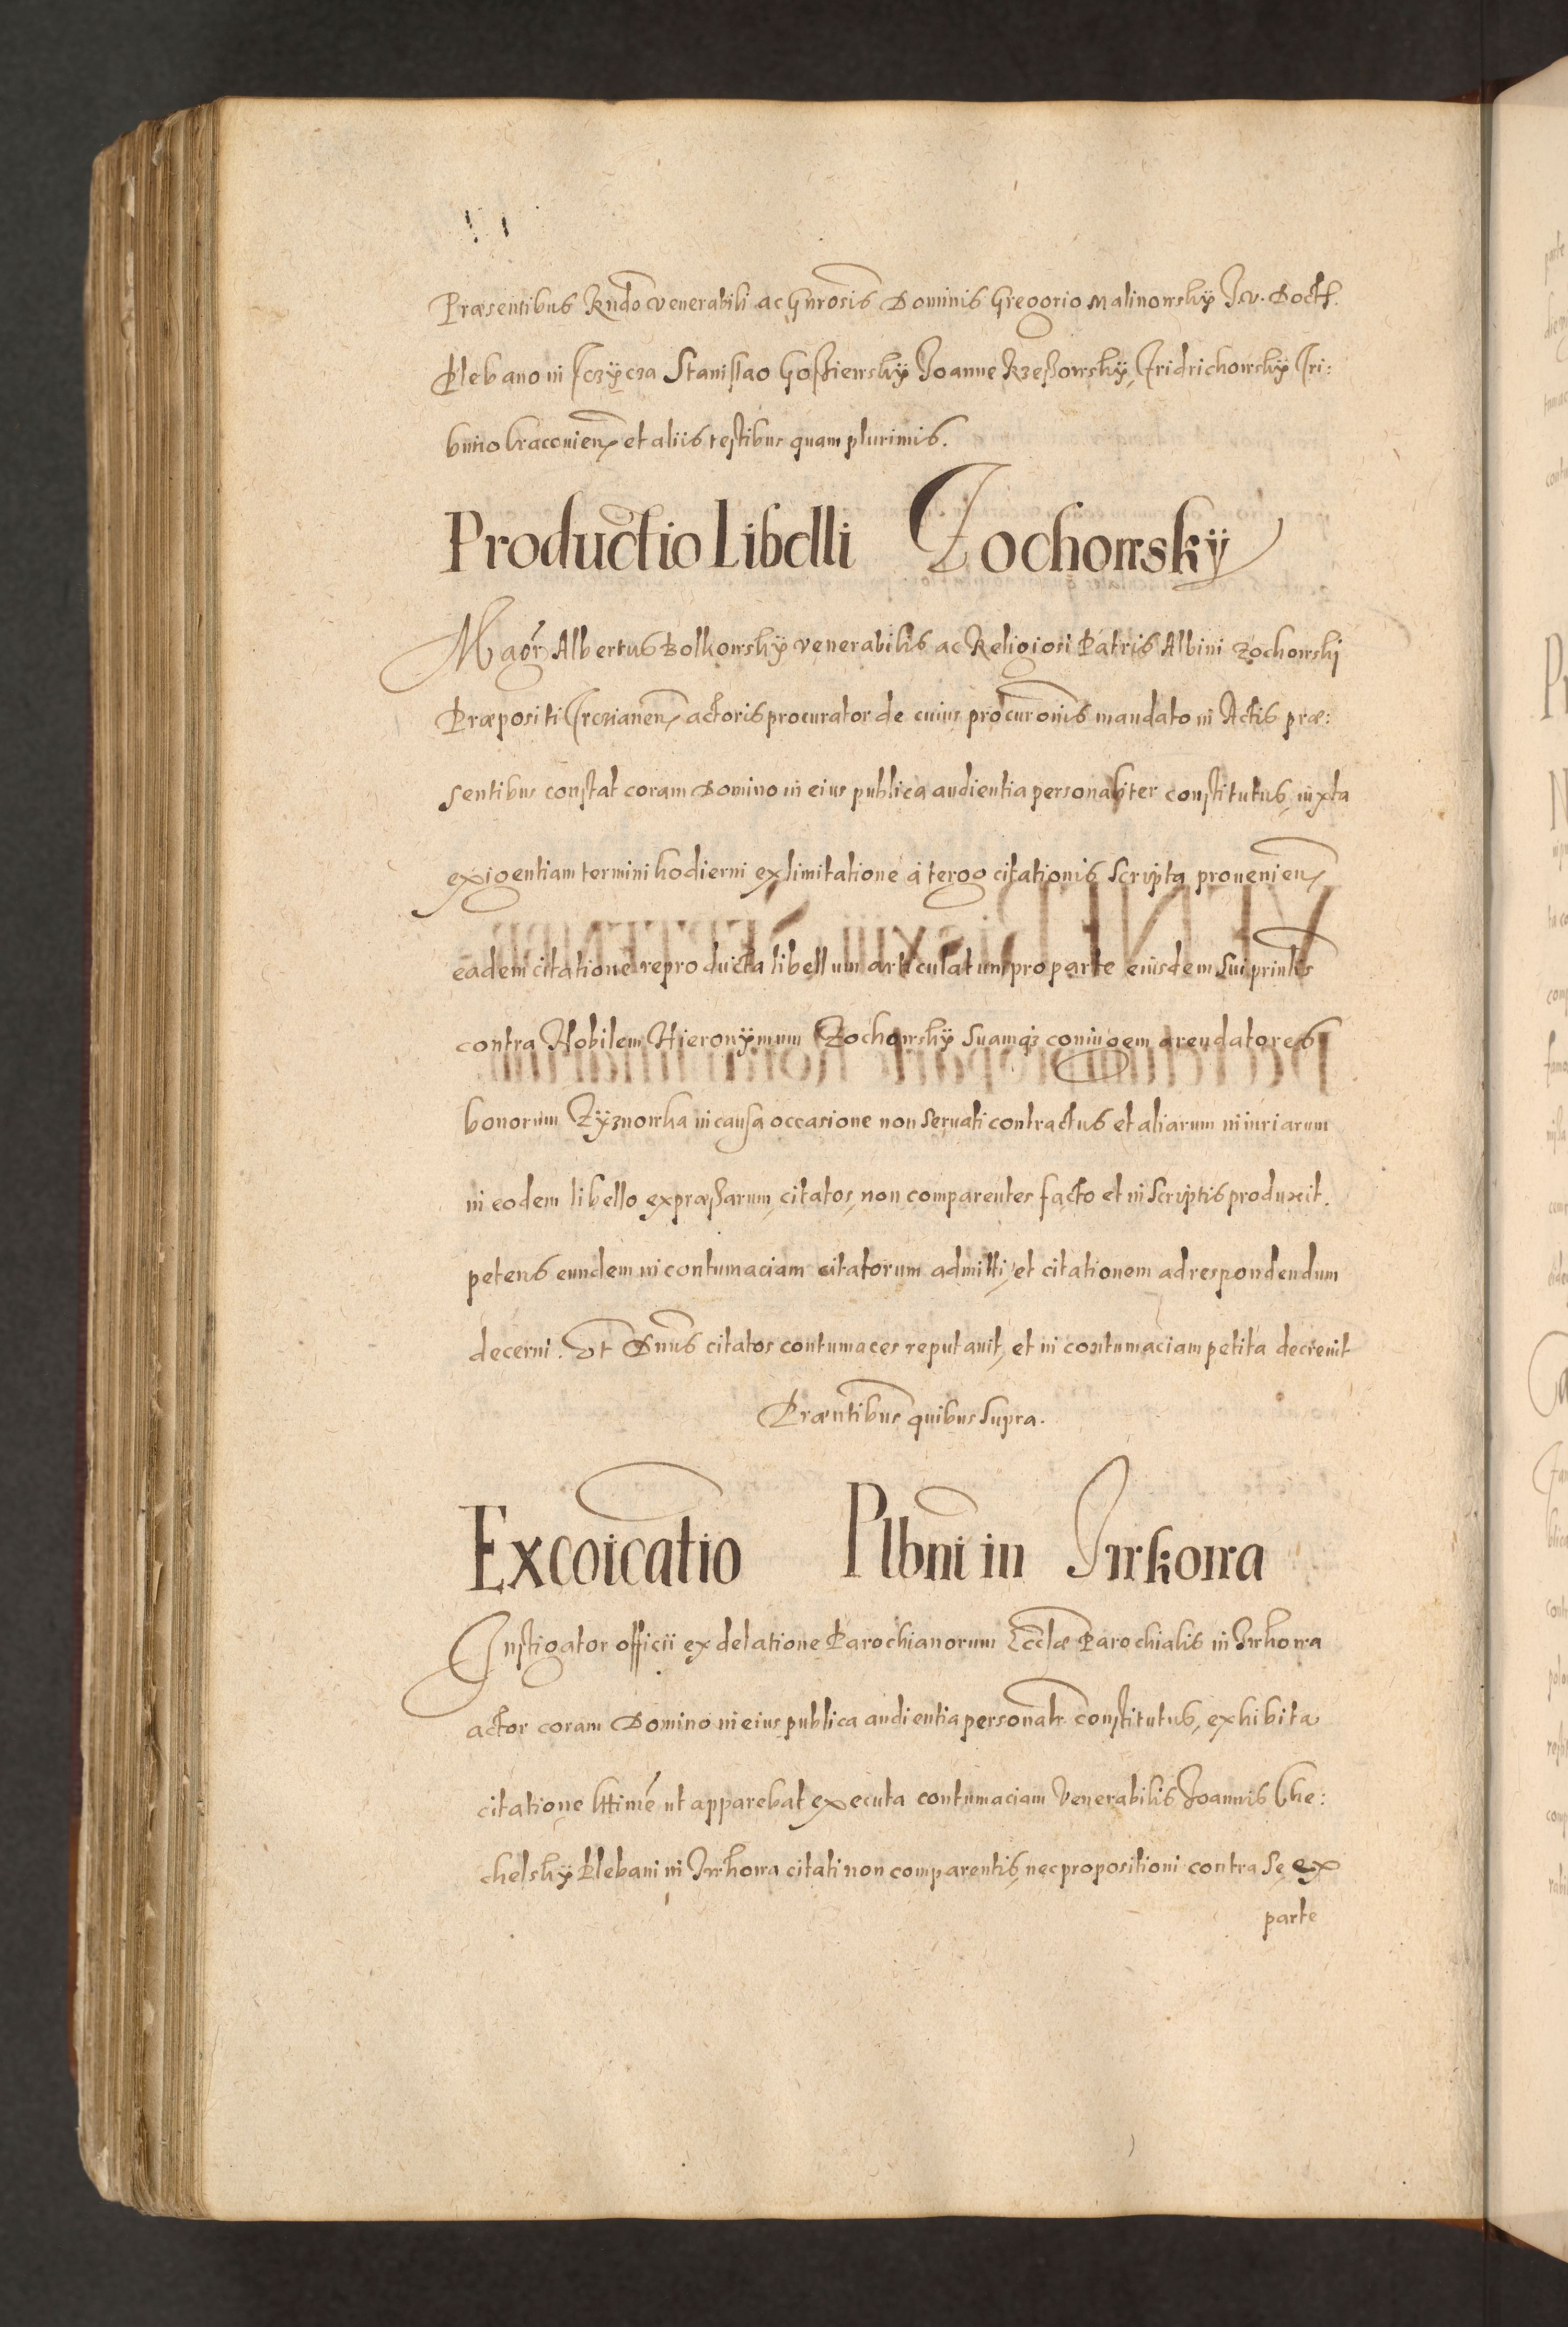 Præsentibus Rndo venerabili ac Gnrosis Dominis Gregorio Malinowskÿ J.v. Doct.
Plebano in Stanislao Joanne Rzeßowskÿ, Fridrichowskÿ Tri:
buno Cracovien et aliis testibus quam plurimis.
Productio Libelli Zochowskÿ
Magr Albertus Bolkowskÿ venerabilis ac Religiosi Patris Albini Zochowski
Præpositi actoris procurator de cuius procuronis mandato in Actis præ:
sentibus constat coram Domino in eius publica audientia personaliter constitutus, iuxta
exigentiam termini hodierni ex limitatione à tergo citationis scripta provenien
eadem citatione reproducta libellum articulatum pro parte eiusdem sui prinlis
contra Nobilem Hieronÿmum Zochowskÿ suamqз coniugem arendatores
bonorum Zÿznowka in causa occasione non servati contractus et aliarum iniuriarum
in eodem libello expræßarum, citatos, non comparentes facto et in scriptis produxit.
petens eundem in contumaciam citatorum admitti, et citationem ad respondendum
decerni. Et Dnus citatos contumaces reputavit, et in contumaciam petita decrevit
Præntibus quibus supra.
Excoicatio Plbni in Irrkowa
Instigator officii ex delatione Parochianorum Ecclæ Parochialis in Irrkowa
actor coram Domino in eius publica audientia personalr constitutus, exhibita
citatione lttime ut apparebat executa contumaciam Venerabilis Joannis Che:
chelskÿ Plebani in Irrkowa citati non comparentis, nec propositioni contra se ex
parte